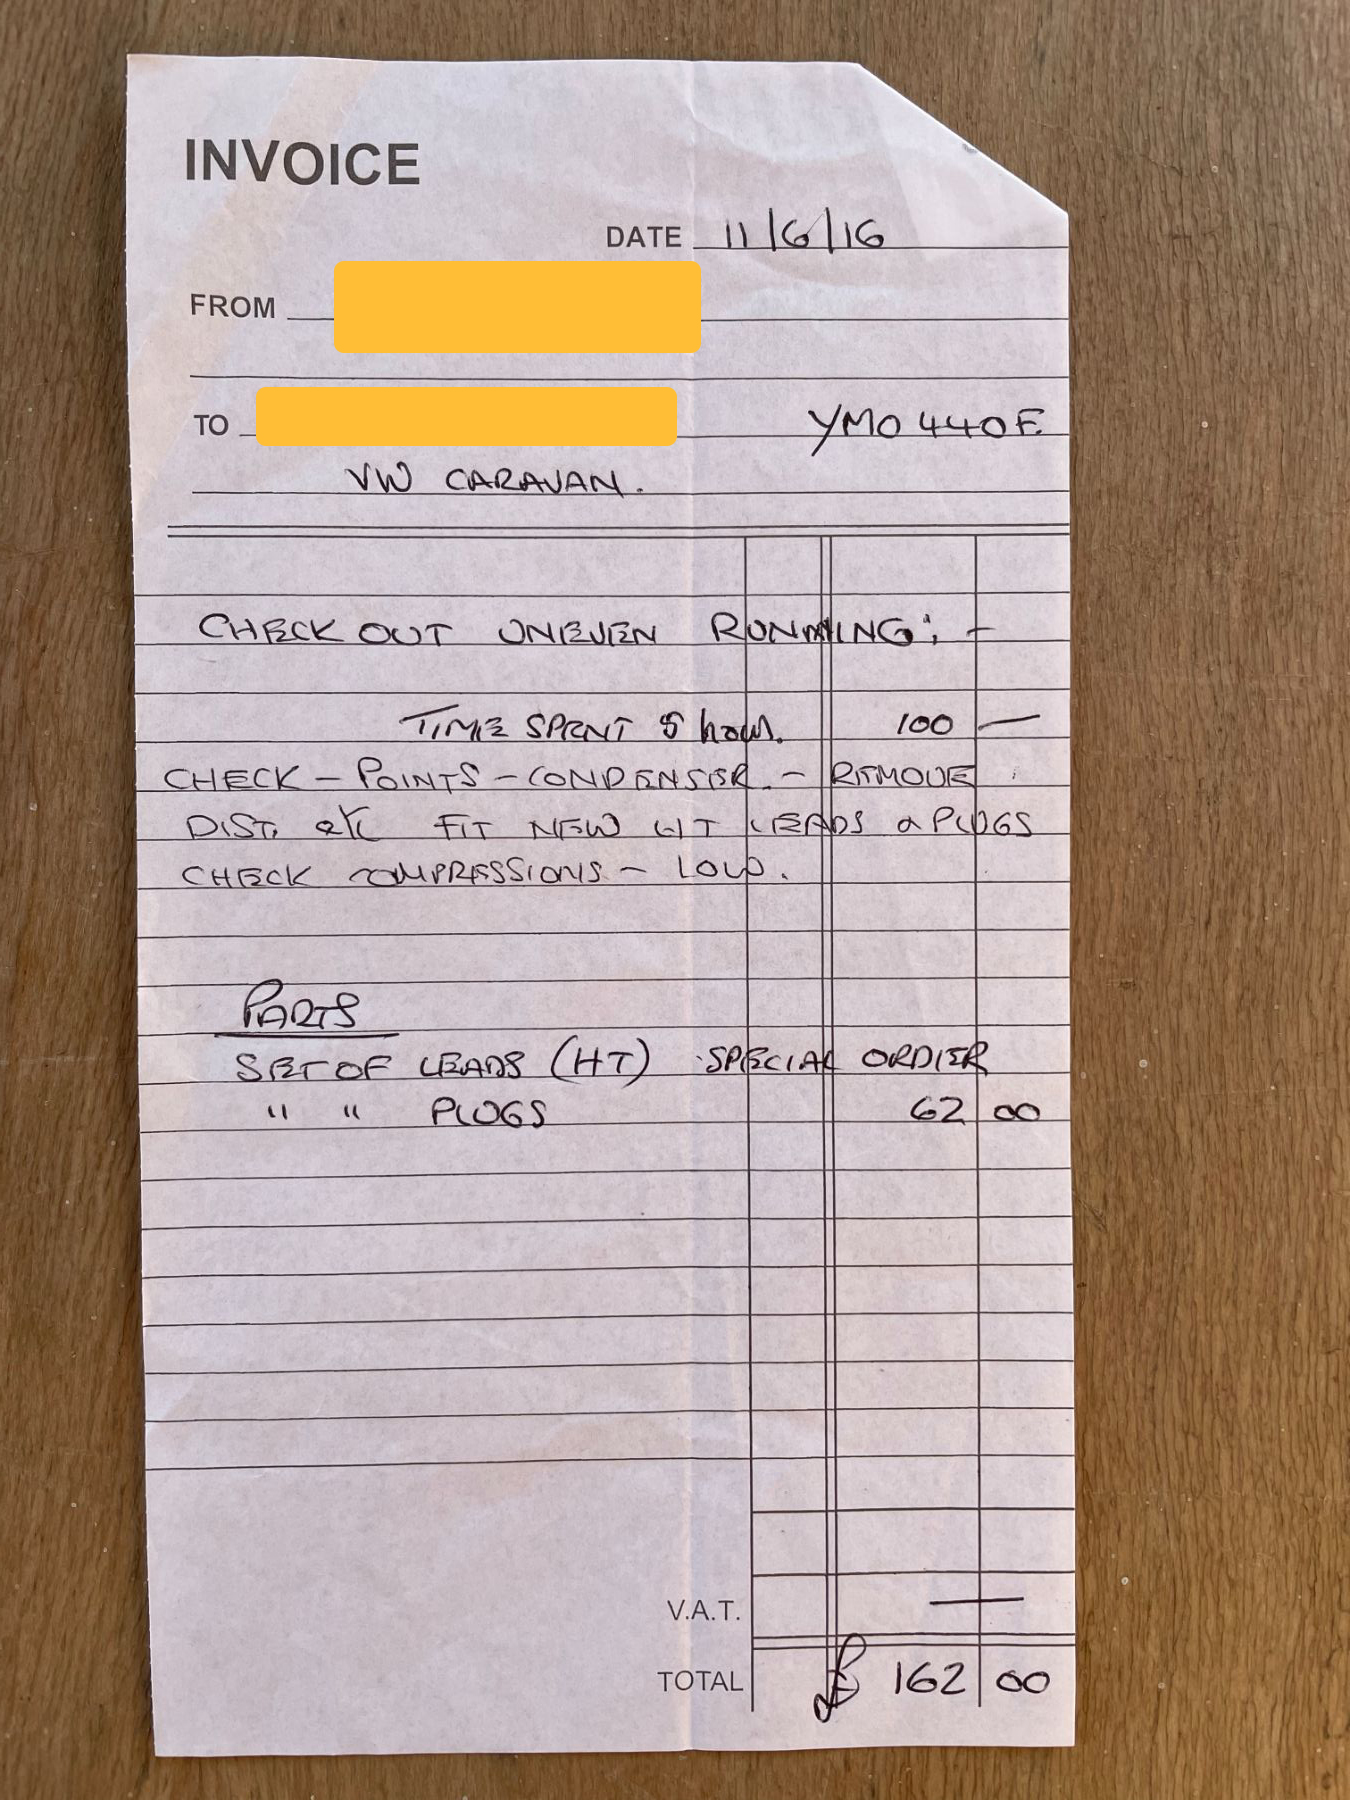 INVOICE
DATE 11/6/16
FROM
TO YMO 440E
VW CARAVAN.
CHECK OUT UNEVEN RUNNING: -
TIME SPENT 5 hours. 100 —
CHECK - POINTS - CONDENSER. - REMOVE
DIST. etc FIT NEW HT LEADS & PLUGS
CHECK COMPRESSIONS - LOW.
PARTS
SET OF LEADS (HT) SPECIAL ORDER
" " PLUGS 62 00
V.A.T. —
TOTAL £ 162 00